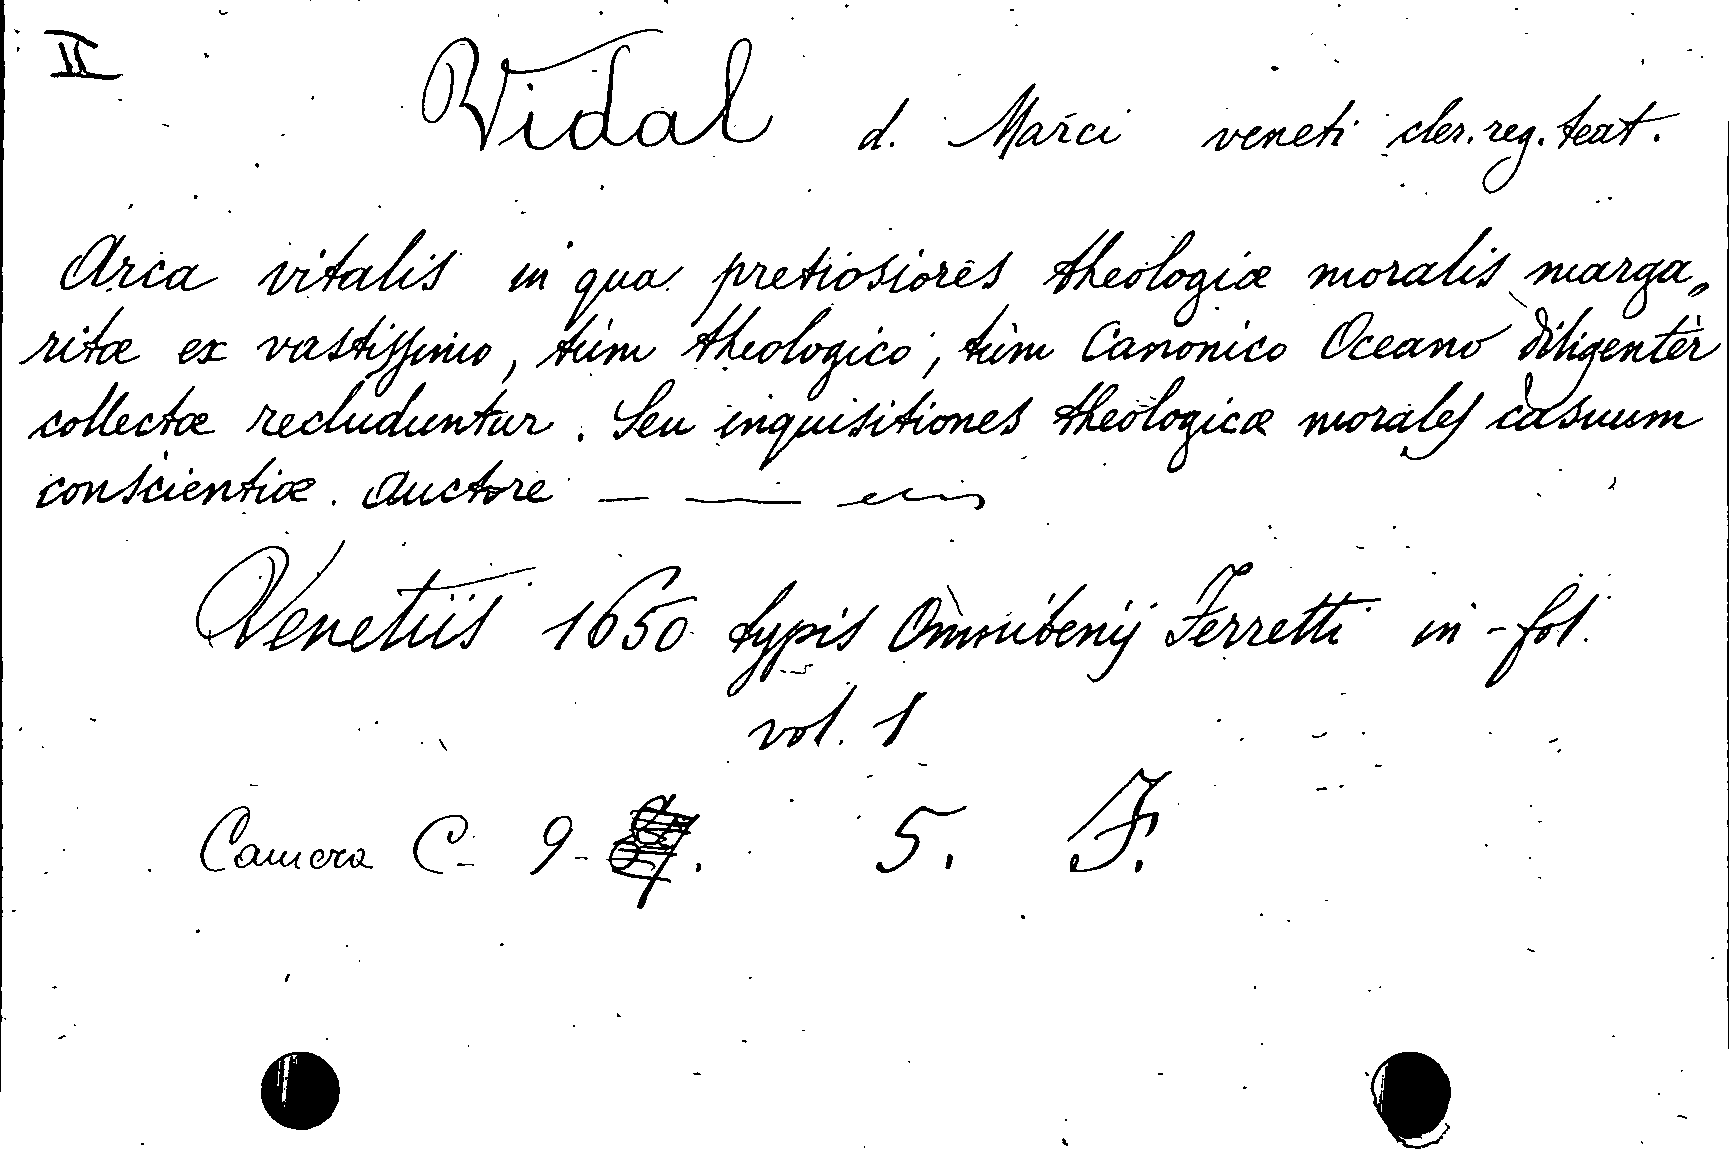 II
Vidal d. Marci veneti cler. reg. teat.
Arca vitalis in qua pretiosiores theologiæ moralis marga„
ritæ ex vastissimo, tùm theologico, tùm Canonico Oceano diligentèr
collectæ recluduntur. Seu inquisitiones theologicæ morales casuum
conscientiæ. Auctore — —
Venetiis 1650 typis Omnibenij Ferretti in-fol.
vol. 1
Camera C- 9- . 5. F.